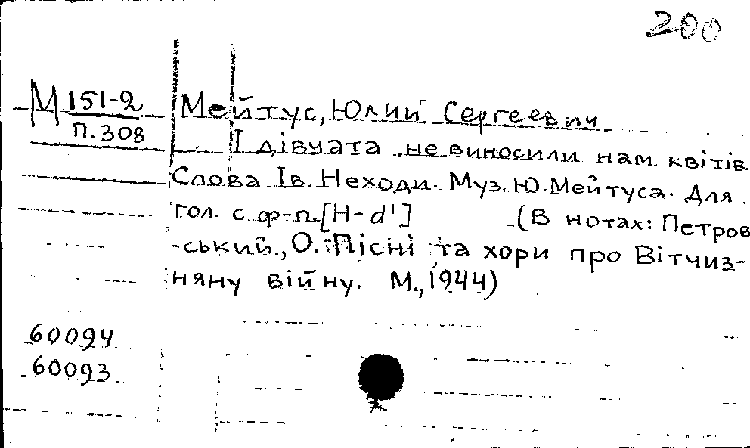 200
М 151-2
п.308
Мейтус, Юлий Сергеевич
І дівчата не виносили нам квітів.
Слова Ів. Неходи. Муз. Ю. Мейтуса. Для
гол. с ф-п. [H-d¹] (В нотах: Петров
-ський, О. Пісні та хори про Вітчиз-
няну війну. М., 1944)
60094
60093